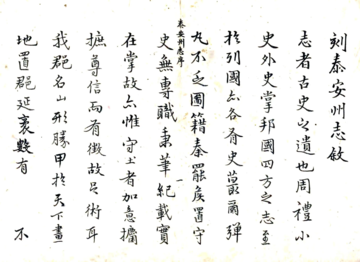 刻泰安州志敘
志者古史之遺也周禮小
史外史掌邦國四方之志至
扵列國亦各有史蕞爾彈
丸不乏圖籍秦罷矦置守
泰安州志序
一
史無專職秉筆紀載實
在掌故亦惟守土者加意攟
摭尊信而有徵故足術耳
我郡名山形勝甲扵天下畫
地置郡延袤數有 不